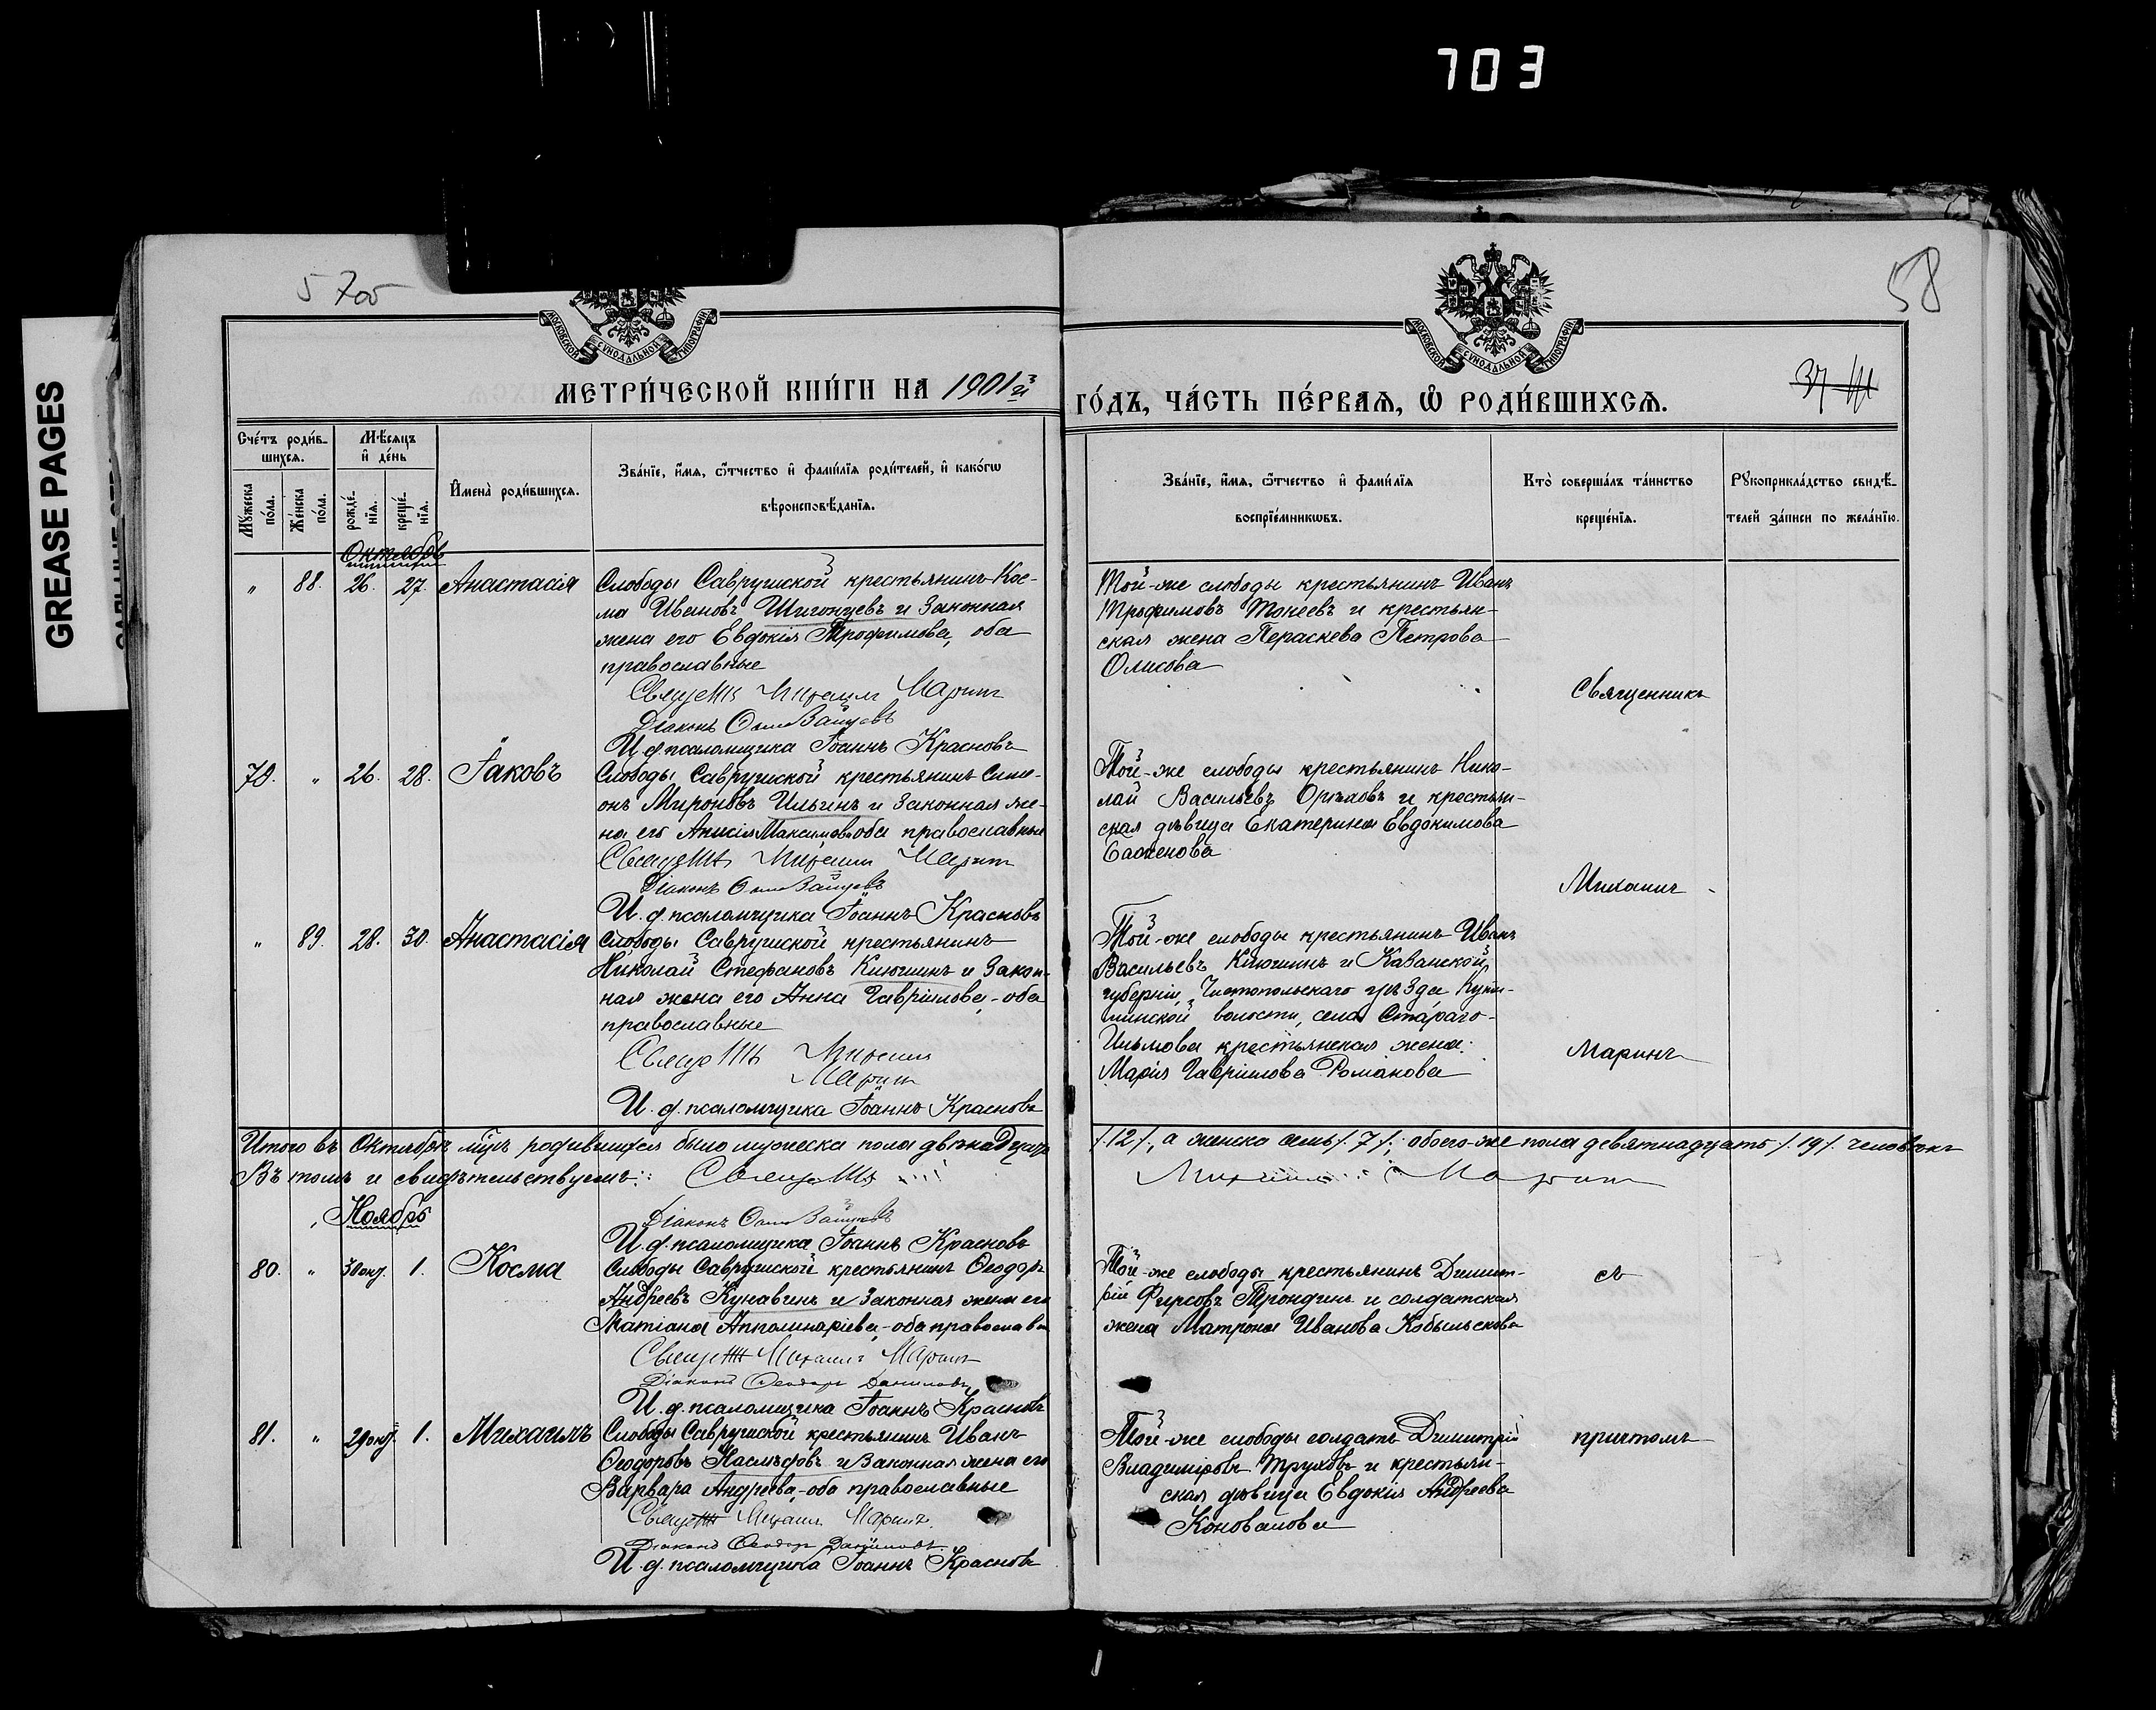 703
GREASE PAGES
5 700
58
МОСКОВСКОЙ СѴНОДАЛЬНОЙ ТИПОГРАФІИ
МОСКОВСКОЙ СѴНОДАЛЬНОЙ ТИПОГРАФІИ
МЕТРИ́ЧЕСКОЙ КНИ́ГИ НА 1901й
ГО́ДЪ, ЧА́СТЬ ПЕ́РВАѦ, Ѽ РОДИ́ВШИХСѦ.
37
Сче́тъ роди́в-
шихсѧ.
Мѣ́сѧцъ
и҆ де́нь
Мꙋ́жеска
по́ла.
Же́нска
по́ла.
рожде́-
нїѧ.
креще́-
нїѧ.
И҆мена̀ роди́вшихсѧ.
Зва́нїе, и҆́мѧ, ѻ҆́тчество и҆ фами́лїѧ роди́телей, и҆ како́гѡ
вѣроисповѣ́данїѧ.
Зва́нїе, и҆́мѧ, ѻ҆́тчество и҆ фами́лїѧ
воспрїе́мникѡвъ.
Кто̀ соверша́лъ та́инство
креще́нїѧ.
Рꙋкоприкла́дство свидѣ́-
телей за́писи по жела́нїю.
Октябрь
" 88. 26. 27. Анастасія
Слободы Саврушской крестьянинъ Кос-
ма Ивановъ Шигонцевъ и законная
жена его Евдокія Трофимова, оба
православные
Священ Михаилъ Маринъ
Діаконъ Зайцевъ
И. д. псаломщика Іоаннъ Красновъ
Той-же слободы крестьянинъ Иванъ
Трофимовъ Токеевъ и крестьян-
ская жена Пераскева Петрова
Олисова
Священникъ
79. " 26. 28. Іаковъ
Слободы Саврушской крестьянинъ Симе-
онъ Мироновъ Ильинъ и законная же-
на его Анисія Максимова оба православные
Священ Михаилъ Маринъ
Діаконъ Зайцевъ
И. д. псаломщика Іоаннъ Красновъ
Той-же слободы крестьянинъ Нико-
лай Васильевъ Орѣховъ и крестьян-
ская дѣвица Екатерина Евдокимова
Баженова
Михаилъ
" 89. 28. 30. Анастасія
Слободы Саврушской крестьянинъ
Николай Стефановъ Клюшинъ и закон-
ная жена его Анна Гавріилова, - оба
православные
Священ Михаилъ
Маринъ
И. д. псаломщика Іоаннъ Красновъ
Той-же слободы крестьянинъ Иванъ
Васильевъ Клюшинъ и Казанской
губерніи, Чистопольскаго уѣзда
волости, села Стараго-
Ильмова крестьянская жена:
Марія Гавріилова Романова
Маринъ
Итого въ Октябрѣ мцѣ родившихся было мужеска пола двѣнадцать
/.12/., а женска семь/.7/.; обоего-же пола девятнадцать /.19/. человѣкъ
Въ томъ и свидѣтельствуемъ: Священ
Михаилъ Маринъ
Ноябрь
Діаконъ Зайцевъ
И. д. псаломщика Іоаннъ Красновъ
80. " 30 окт. 1. Косма
Слободы Саврушской крестьянинъ Ѳеодоръ
Андреевъ Кунавинъ и законная жена его
Татіана Апполинаріева, - оба православн
Священ Михаилъ Маринъ
Діаконъ Ѳеодоръ Даниловъ
И. д. псаломщика Іоаннъ Красновъ
Той-же слободы крестьянинъ Димит-
рій Фирсовъ Трондинъ и солдатская
жена Матрона Иванова Кобыльскова
съ
81. " 29 окт. 1. Михаилъ
Слободы Саврушской крестьянинъ Иванъ
Ѳеодоровъ Наслѣдовъ и законная жена его
Варвара Андреева, - оба православные
Священ Михаилъ Маринъ.
Діаконъ Ѳеодоръ Даниловъ
И. д. псаломщика Іоаннъ Красновъ
Той-же слободы солдатъ Димитрій
Владиміровъ Труховъ и крестьян-
ская дѣвица Евдокія Андреева
Коновалова
причтомъ